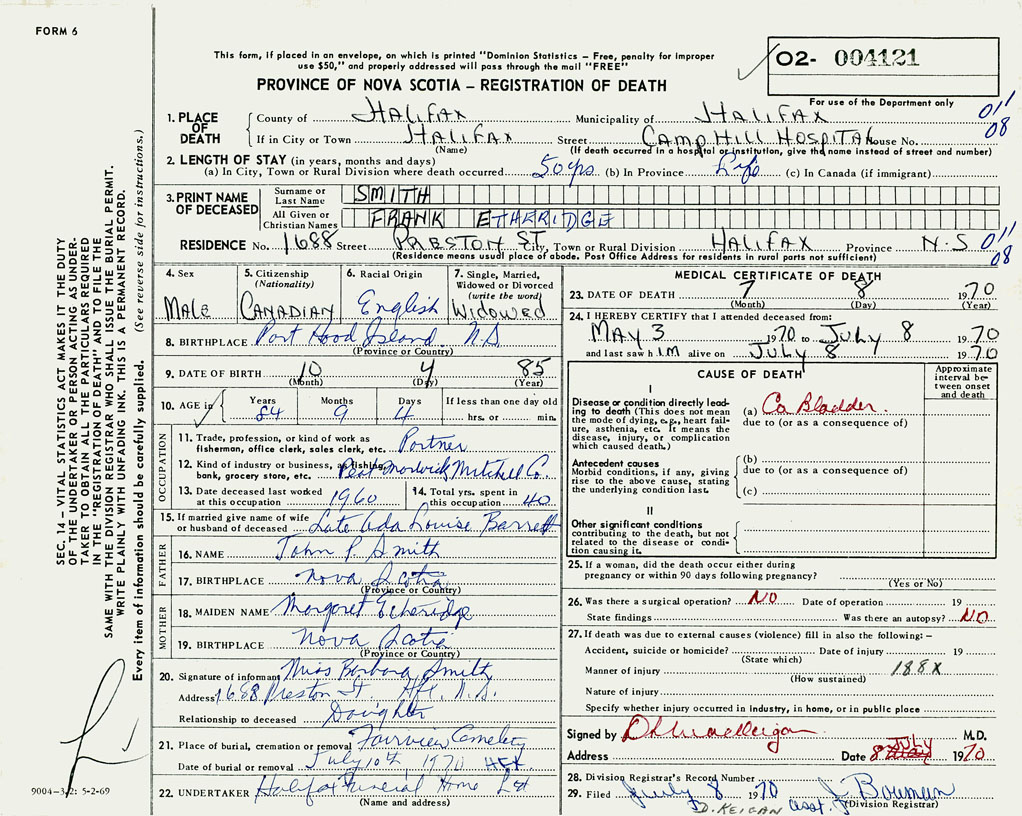 FORM 6
This form, if placed in an envelope, on which is printed "Dominion Statistics – Free, penalty for improper
use $50," and properly addressed will pass through the mail "FREE"
PROVINCE OF NOVA SCOTIA – REGISTRATION OF DEATH
O2- 004121
For use of the Department only
011
08
1. PLACE OF DEATH
County of HALIFAX Municipality of HALIFAX
If in City or Town HALIFAX Street CAMP HILL HOSPITAL House No.
(Name) (If death occurred in a hospital or institution, give the name instead of street and number)
2. LENGTH OF STAY (in years, months and days)
(a) In City, Town or Rural Division where death occurred 50 yrs (b) In Province Life (c) In Canada (if immigrant)
3. PRINT NAME OF DECEASED
Surname or Last Name SMITH
All Given or Christian Names FRANK ETHERIDGE
RESIDENCE No. 1688 Street PRESTON ST City, Town or Rural Division HALIFAX Province N.S 011
(Residence means usual place of abode. Post Office Address for residents in rural parts not sufficient) 08
4. Sex
MALE
5. Citizenship
(Nationality)
CANADIAN
6. Racial Origin
English
7. Single, Married,
Widowed or Divorced
(write the word)
WIDOWED
8. BIRTHPLACE Port Hood Island N.S.
(Province or Country)
9. DATE OF BIRTH 10 4 85
(Month) (Day) (Year)
10. AGE in Years Months Days If less than one day old
84 9 4 hrs. or min.
OCCUPATION
11. Trade, profession, or kind of work as
fisherman, office clerk, sales clerk, etc. Portner
12. Kind of industry or business, as fishing,
bank, grocery store, etc. Mitchell Co.
13. Date deceased last worked
at this occupation 1960
14. Total yrs. spent in
this occupation 40
15. If married give name of wife
or husband of deceased Late Ada Louise Barrett
FATHER
16. NAME John P. Smith
17. BIRTHPLACE Nova Scotia
(Province or Country)
MOTHER
18. MAIDEN NAME Margaret Etheridge
19. BIRTHPLACE Nova Scotia
(Province or Country)
20. Signature of informant Miss Barbara Smith
Address 1688 Preston St Hfx. N.S.
Relationship to deceased Daughter
21. Place of burial, cremation or removal Fairview Cemetery
Date of burial or removal July 10th, 1970 HFX
22. UNDERTAKER Halifax Funeral Home Ltd
(Name and address)
MEDICAL CERTIFICATE OF DEATH
23. DATE OF DEATH 7 8 1970
(Month) (Day) (Year)
24. I HEREBY CERTIFY that I attended deceased from:
MAY 3 1970 to JULY 8 1970
and last saw him alive on JULY 8 1970
CAUSE OF DEATH
Approximate
interval be-
tween onset
and death
I
Disease or condition directly lead-
ing to death (This does not mean
the mode of dying, e.g., heart fail-
ure, asthenia, etc. It means the
disease, injury, or complication
which caused death.)
(a) Ca Bladder.
due to (or as a consequence of)
Antecedent causes
Morbid conditions, if any, giving
rise to the above cause, stating
the underlying condition last.
(b)
due to (or as a consequence of)
(c)
II
Other significant conditions
contributing to the death, but not
related to the disease or condi-
tion causing it.
25. If a woman, did the death occur either during
pregnancy or within 90 days following pregnancy?
(Yes or No)
26. Was there a surgical operation? NO Date of operation 19
State findings Was there an autopsy? NO
27. If death was due to external causes (violence) fill in also the following: –
Accident, suicide or homicide? Date of injury 19
(State which)
Manner of injury 188X
(How sustained)
Nature of injury
Specify whether injury occurred in industry, in home, or in public place
Signed by M.D.
Address Date 8 July 1970
28. Division Registrar's Record Number
29. Filed July 8 1970 J Bowman
D. KEIGAN asst. (Division Registrar)
SEC. 14 – VITAL STATISTICS ACT MAKES IT THE DUTY
OF THE UNDERTAKER OR PERSON ACTING AS UNDER-
TAKER TO OBTAIN ALL THE PARTICULARS REQUIRED
IN THE "REGISTRATION OF DEATH" AND TO FILE THE
SAME WITH THE DIVISION REGISTRAR WHO SHALL ISSUE THE BURIAL PERMIT.
WRITE PLAINLY WITH UNFADING INK. THIS IS A PERMANENT RECORD.
Every item of information should be carefully supplied. (See reverse side for instructions.)
9004-3.2: 5-2-69